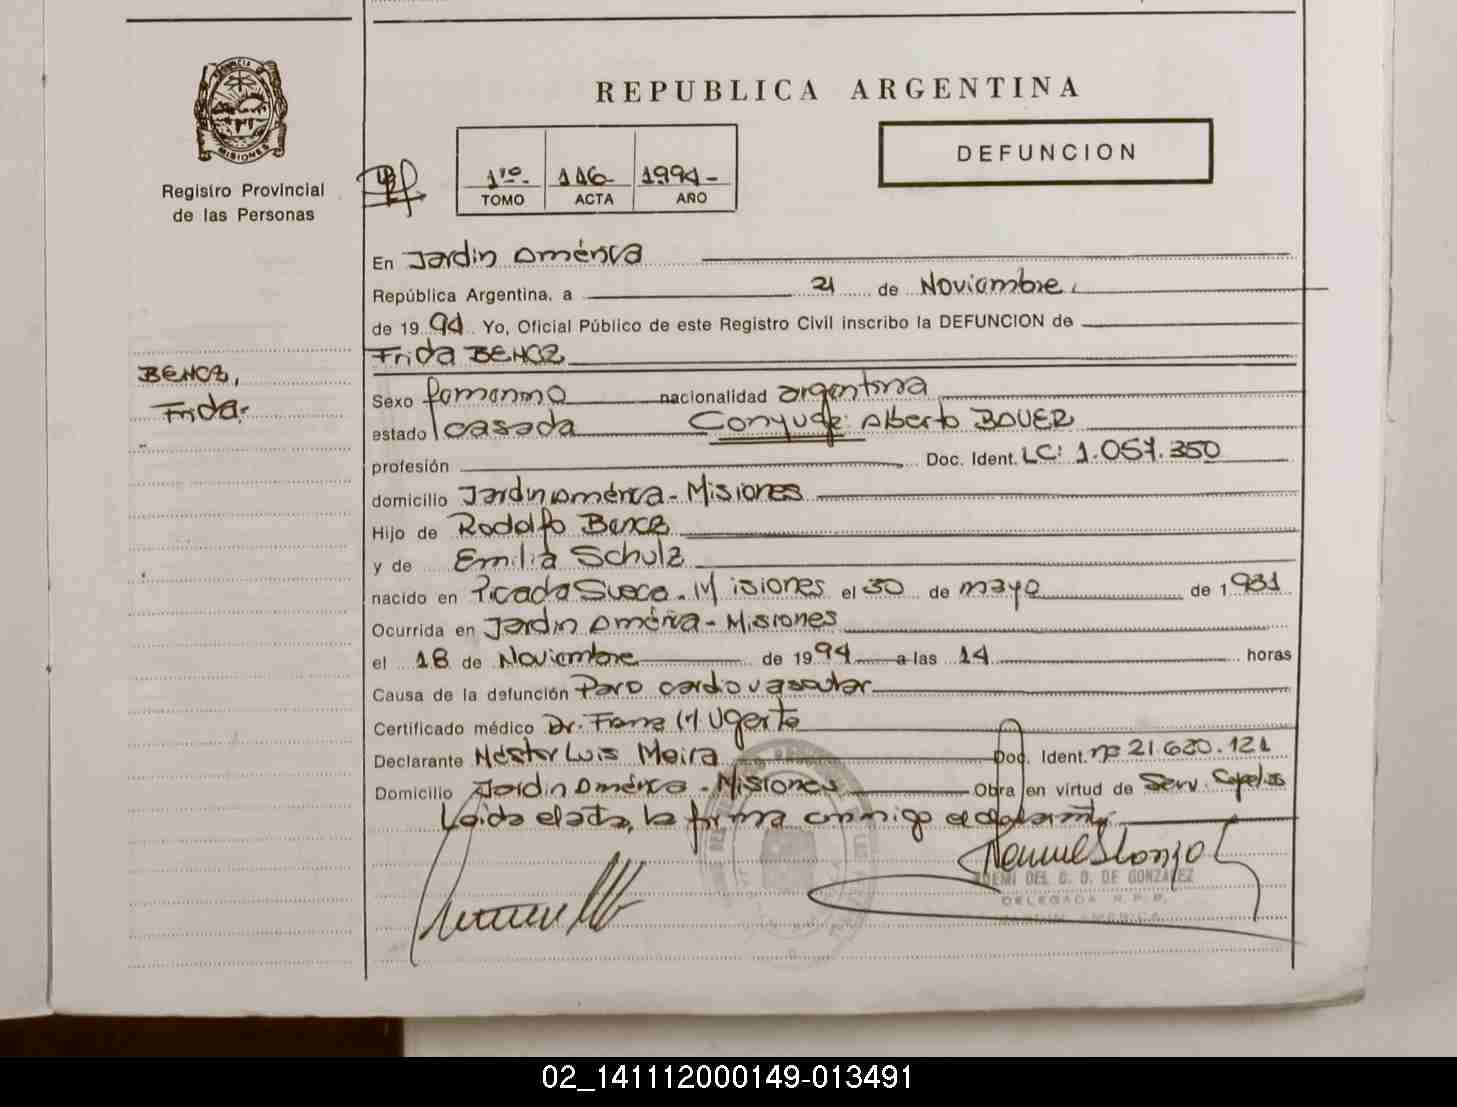 REPUBLICA ARGENTINA
PROVINCIA D
MISIONES
Registro Provincial
de las Personas
1ro. 116- 1994-
TOMO ACTA AÑO
DEFUNCION
En Jardin América
República Argentina, a 21 de Noviembre
de 1994 Yo, Oficial Público de este Registro Civil inscribo la DEFUNCION de
Frida BENCZ
BENCZ,
Frida.
Sexo femenino nacionalidad argentina
estado casada Conyuge: Alberto BAUER
profesión Doc. Ident. LC: 1.057.350
domicilio Jardin América - Misiones
Hijo de Rodolfo Bencz
y de Emilia Schulz
nacido en Picada Sueca. Misiones el 30 de mayo de 1931
Ocurrida en Jardin América - Misiones
el 18 de Noviembre de 1994 a las 14 horas
Causa de la defunción Paro cardiovascular
Certificado médico Dr. M Ugarte
Declarante Néstor Luis Meira Doc. Ident. nº 21.620.121
Domicilio Jardin América - Misiones Obra en virtud de Serv.
Leida el acta, la firma conmigo el declarante.
DEL C. D. DE GONZALEZ
DELEGADA R.P.P.
JARDIN AMERICA
02_141112000149-013491